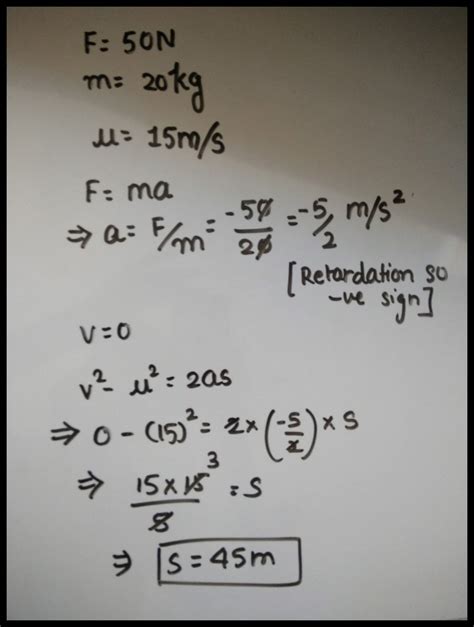 F= 50N
m= 20kg
u= 15m/s
F= ma
⇒ a= F/m = -50/20 = -5/2 m/s²
[Retardation so
-ve sign]
v=0
v²- u² = 2as
⇒ 0 - (15)² = 2 × (-5/2) × s
⇒ 15×15 3 / 5 = s
⇒ s = 45m